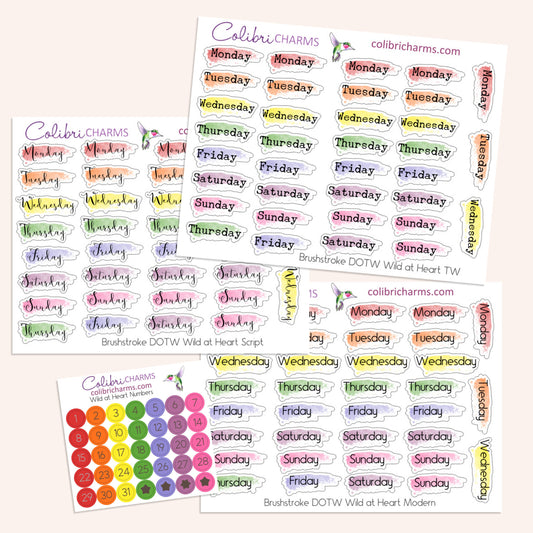 Colibri CHARMS
colibricharms.com
Monday Monday Monday Monday
Tuesday Tuesday Tuesday Tuesday
Wednesday Wednesday Wednesday Wednesday
Thursday Thursday Thursday Thursday
Friday Friday Friday Friday
Saturday Saturday Saturday Saturday
Sunday Sunday Sunday Sunday
Thursday Friday Saturday Sunday
Monday
Tuesday
Wednesday
Brushstroke DOTW Wild at Heart TW
Colibri CHARMS
Monday Monday
Tuesday Tuesday
Wednesday Wednesday
Thursday Thursday
Friday Friday
Saturday Saturday Saturday Saturday
Sunday Sunday Sunday Sunday
Thursday Friday Saturday Sunday
Wednesday
Brushstroke DOTW Wild at Heart Script
CHARMS
colibricharms.com
Monday Monday
Tuesday Tuesday
Wednesday Wednesday Wednesday Wednesday
Thursday Thursday Thursday Thursday
Friday Friday Friday Friday
Saturday Saturday Saturday Saturday
Sunday Sunday Sunday Sunday
Thursday Friday Saturday Sunday
Monday
Tuesday
Wednesday
Brushstroke DOTW Wild at Heart Modern
Colibri CHARMS
colibricharms.com
Wild at Heart Numbers
1 2 3 4 5 6 7
8 9 10 11 12 13 14
15 16 17 18 19 20 21
22 23 24 25 26 27 28
29 30 31